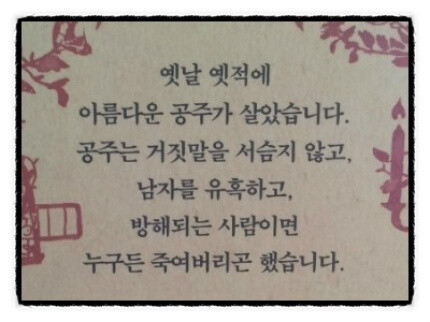 옛날 옛적에
아름다운 공주가 살았습니다.
공주는 거짓말을 서슴지 않고,
남자를 유혹하고,
방해되는 사람이면
누구든 죽여버리곤 했습니다.